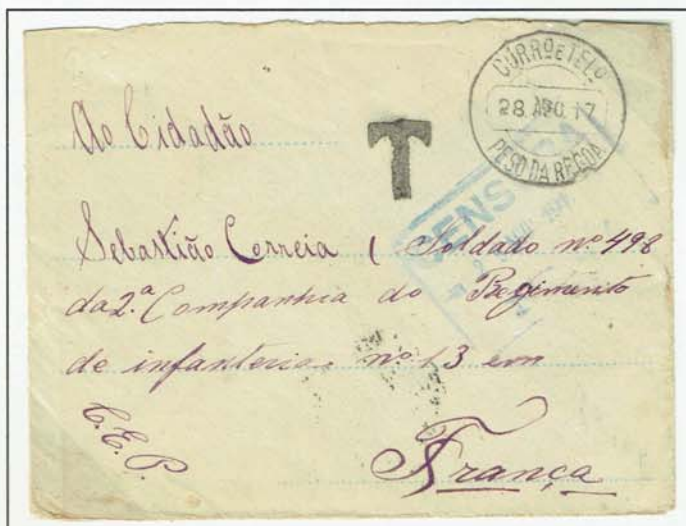 CORRO E TELO
28. AGO. 17
PESO DA REGOA
T
CENSURA
Ao Cidadão
Sebastião Correia ( Soldado nº 498
da 2.ª Companhia do Regimento
de infanteria nº 13 em
C.E.P.
França